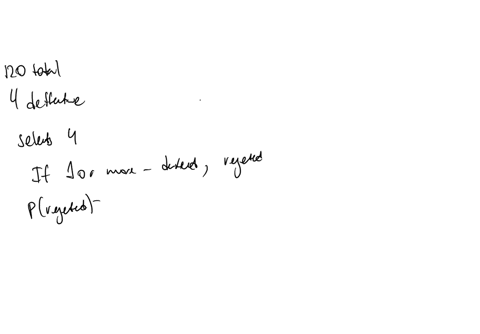 120 total
4 defective
selects 4
If 1 or more - defects, rejected
P(rejected)=